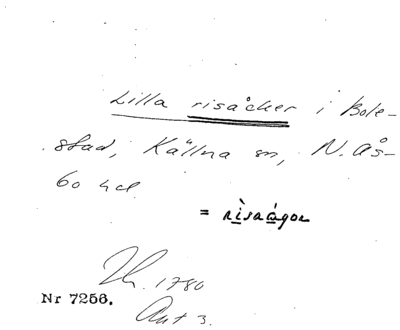 Lilla risåcker i Bole-
stad, Källna sn, N. Ås-
bo hd.
= rìsaágor
1780
Nr 7256.
Akt 3.